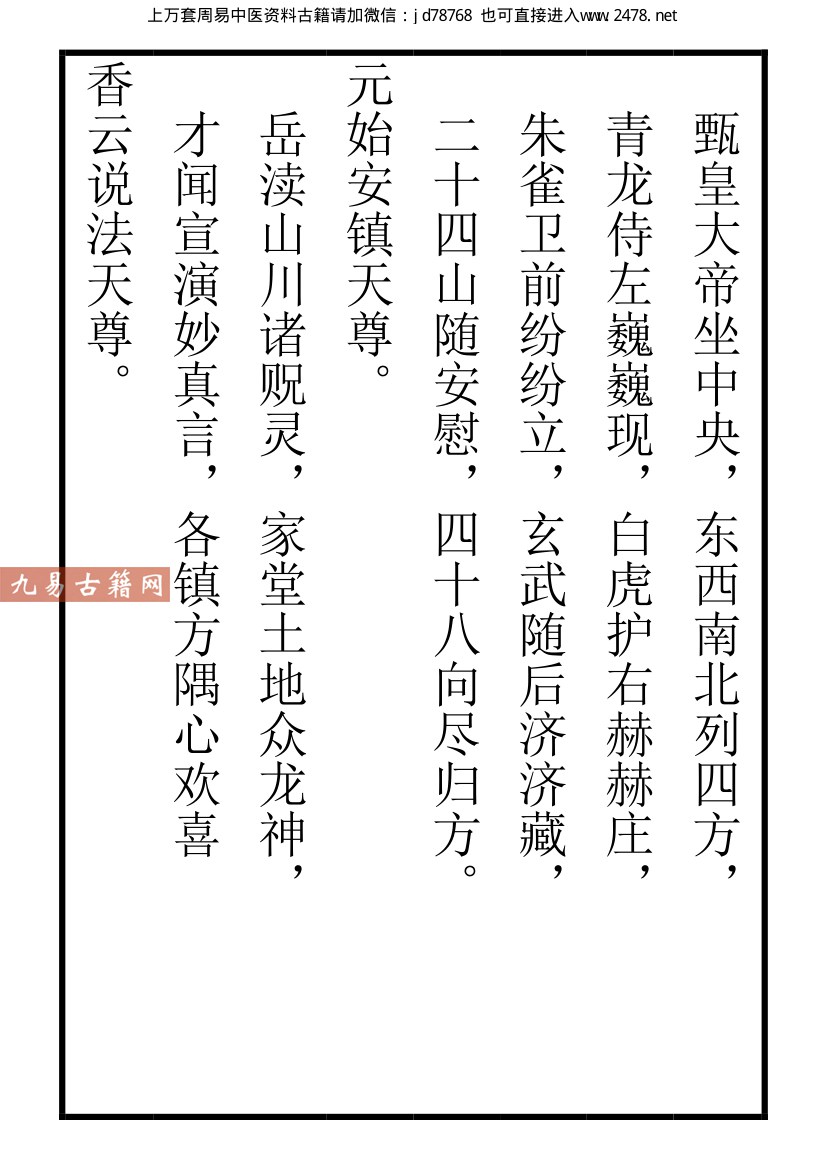 上万套周易中医资料古籍请加微信：jd78768 也可直接进入www.2478.net
甄皇大帝坐中央，东西南北列四方，
青龙侍左巍巍现，白虎护右赫赫庄，
朱雀卫前纷纷立，玄武随后济济藏，
二十四山随安慰，四十八向尽归方。
元始安镇天尊。
岳渎山川诸贶灵，家堂土地众龙神，
才闻宣演妙真言，各镇方隅心欢喜
香云说法天尊。
九易古籍网